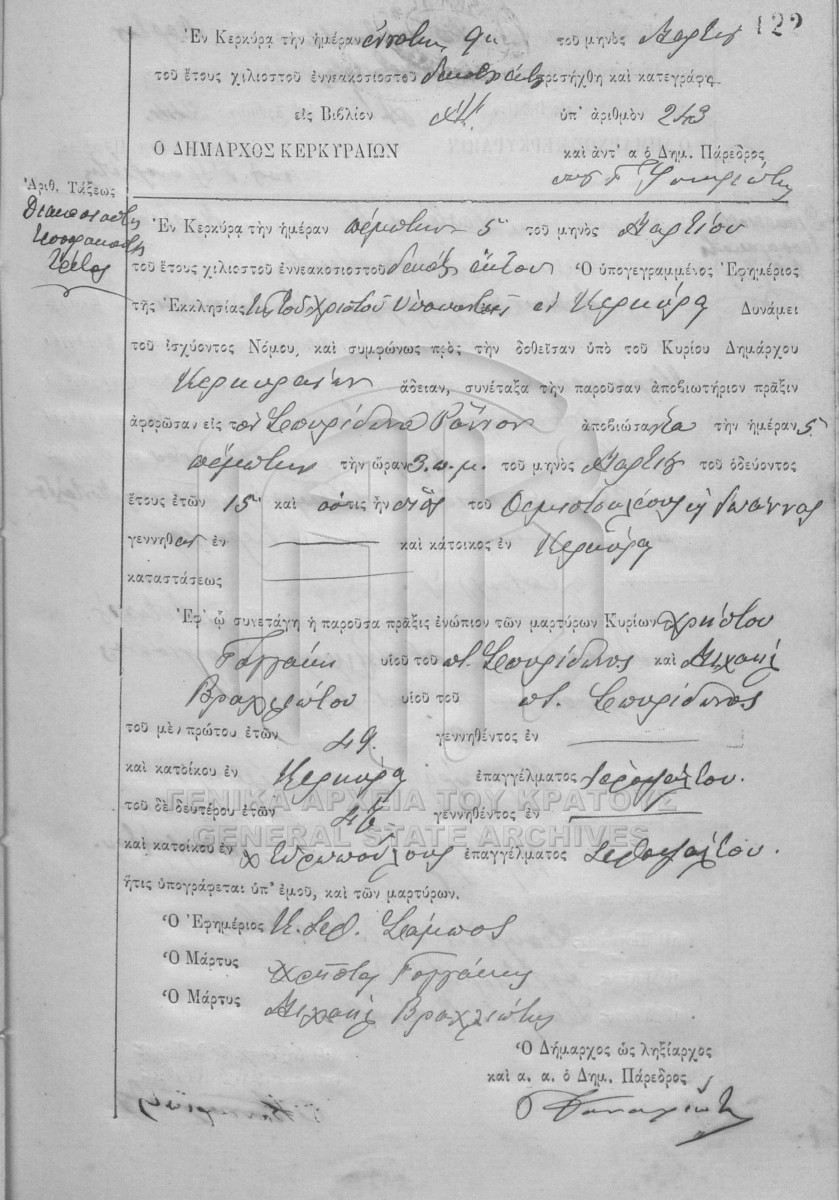 122
Ἐν Κερκύρᾳ τὴν ἡμέραν ἐννάτην 9ην τοῦ μηνὸς Μαρτίου
τοῦ ἔτους χιλιοστοῦ ἐννεακοσιοστοῦ προσήχθη καὶ κατεγράφη
εἰς Βιβλίον ὑπ' ἀριθμὸν 243
Ὁ ΔΗΜΑΡΧΟΣ ΚΕΡΚΥΡΑΙΩΝ καὶ ἀντ' α ὁ Δημ. Πάρεδρος
Ἀριθ. Τάξεως
Διακοσιοστὴ
τεσσαρακοστὴ
τρίτος
Ἐν Κερκύρᾳ τὴν ἡμέραν πέμπτην 5ην τοῦ μηνὸς Μαρτίου
τοῦ ἔτους χιλιοστοῦ ἐννεακοσιοστοῦ δεκάτου ἕκτου Ὁ ὑπογεγραμμένος Ἐφημέριος
τῆς Ἐκκλησίας τοῦ Χριστοῦ Ὑπαπαντῆς ἐν Κερκύρᾳ Δυνάμει
τοῦ ἰσχύοντος Νόμου, καὶ συμφώνως πρὸς τὴν δοθεῖσαν ὑπὸ τοῦ Κυρίου Δημάρχου
Κερκυραίων ἄδειαν, συνέταξα τὴν παροῦσαν ἀποβιωτήριον πρᾶξιν
ἀφορῶσαν εἰς τὸν Σπυρίδωνα ἀποβιώσαντα τὴν ἡμέραν 5
πέμπτην τὴν ὥραν 3 π.μ. τοῦ μηνὸς Μαρτίου τοῦ ὁδεύοντος
ἔτους ἐτῶν 15 καὶ ὅστις ἦν υἱὸς τοῦ Θεμιστοκλέους ἢ Ἰωάννας
γεννηθεὶς ἐν καὶ κάτοικος ἐν Κερκύρᾳ
καταστάσεως
Ἐφ' ᾧ συνετάγη ἡ παροῦσα πρᾶξις ἐνώπιον τῶν μαρτύρων Κυρίων Χρήστου
Γαγγάκη υἱοῦ τοῦ π. Σπυρίδωνος καὶ Μιχαὴλ
Βραχλιώτου υἱοῦ τοῦ π. Σπυρίδωνος
τοῦ μὲν πρώτου ἐτῶν 49 γεννηθέντος ἐν
καὶ κατοίκου ἐν Κερκύρᾳ ἐπαγγέλματος ἱεροψάλτου.
ΓΕΝΙΚΑ ΑΡΧΕΙΑ ΤΟΥ ΚΡΑΤΟΥΣ
τοῦ δὲ δευτέρου ἐτῶν γεννηθέντος ἐν
GENERAL STATE ARCHIVES
καὶ κατοίκου ἐν χ Εὐρωπούλους ἐπαγγέλματος ἱεροψάλτου.
ἥτις ὑπογράφεται ὑπ' ἐμοῦ, καὶ τῶν μαρτύρων.
Ὁ Ἐφημέριος
Ὁ Μάρτυς Χρῆστος Γαγγάκης
Ὁ Μάρτυς Μιχαὴλ Βραχλιώτης
Ὁ Δήμαρχος ὡς ληξίαρχος
καὶ α. α. ὁ Δημ. Πάρεδρος